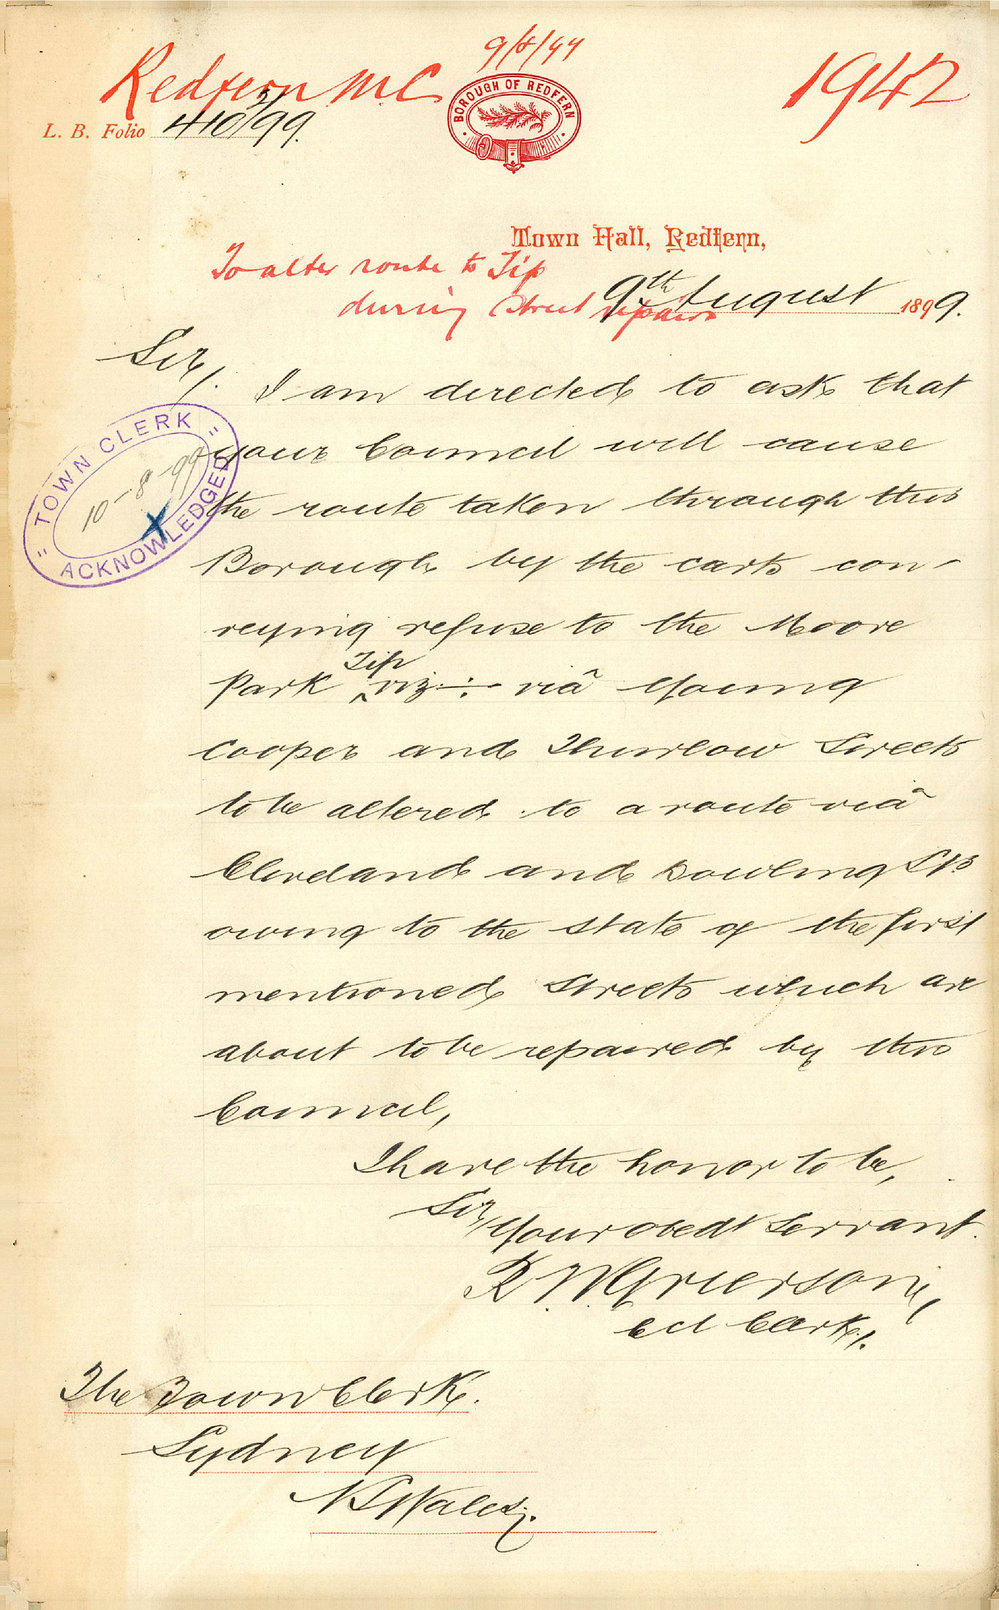 Redfern M.C
9/8/99
1942
BOROUGH OF REDFERN
L. B. Folio 410/99.
Town Hall, Redfern,
To alter route to Tip
during Street repairs
9th August 1899.
Sir/.
I am directed to ask that
your Council will cause
the route taken through this
Borough by the carts con-
veying refuse to the Moore
Park Tip viz:- viâ Young
Cooper and Thurlow Streets
to be altered to a route viâ
Cleveland and Dowling Sts
owing to the state of the first
mentioned Streets which are
about to be repaired by this
Council,
I have the honor to be,
Sir,
Your obedt Servant.
Ccl Clerk.
"TOWN CLERK"
10-8-99
ACKNOWLEDGED
The Town Clerk.
Sydney
N S Wales.